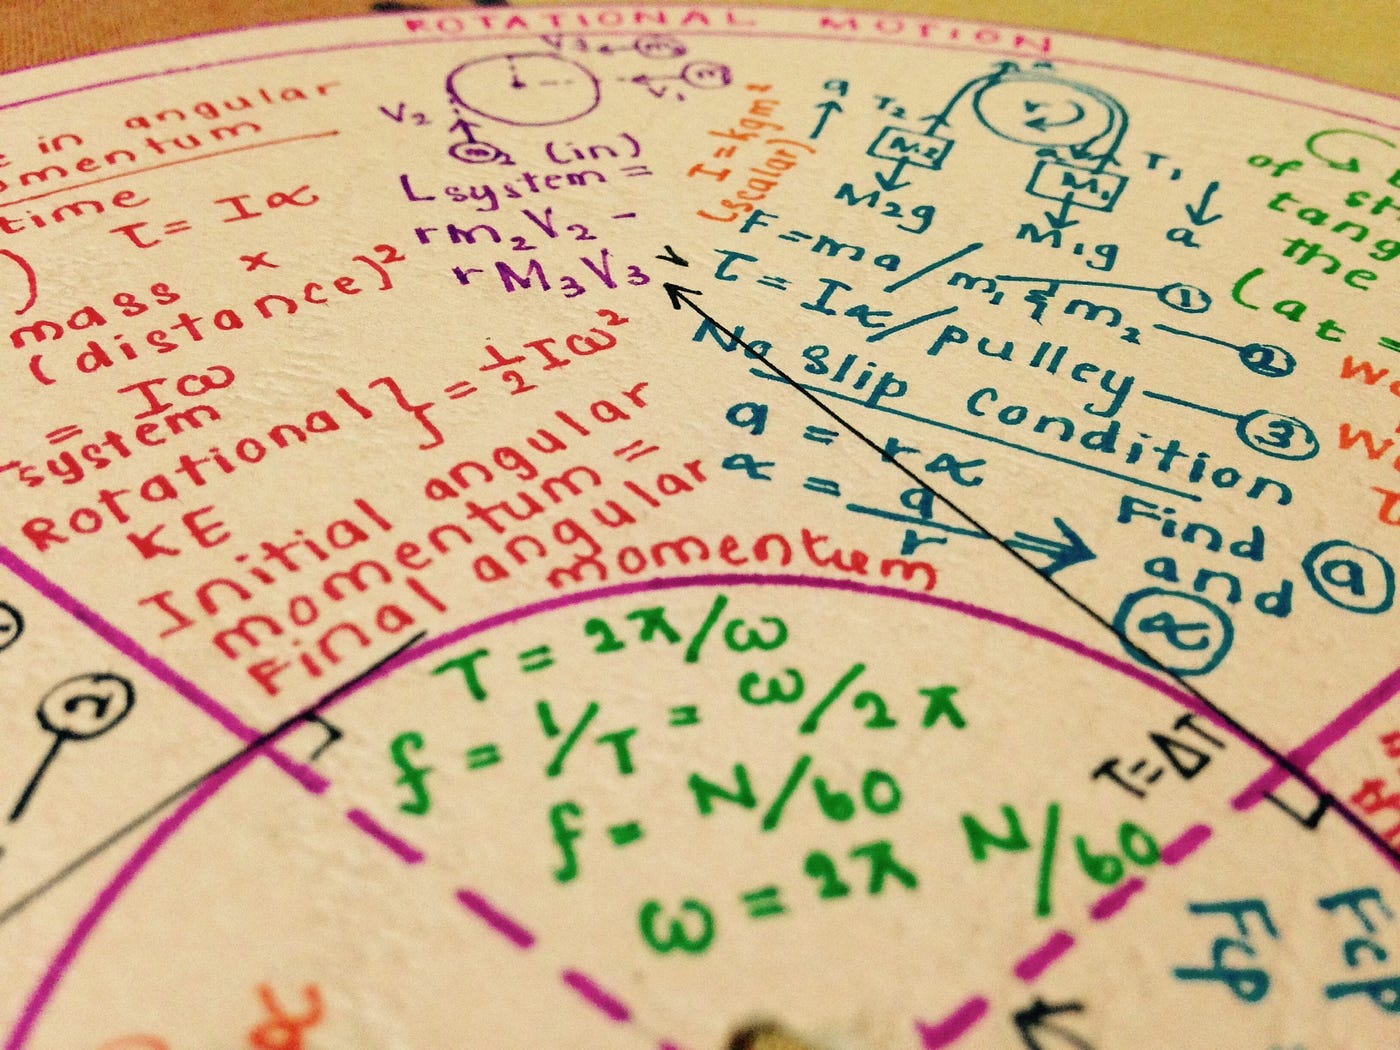 ROTATIONAL MOTION
in angular
momentum
time
τ = Iα
mass x
(distance)²
= Iω
system
Rotational } = 1/2 Iω²
KE
Initial angular
momentum =
Final angular
momentum
V₃ m₃
m V₁
V₂
m₂ (in)
Lsystem =
rm₂V₂ -
rM₃V₃
I = kgm²
(scalar)
a T₂ r
M₂ T₁
M₁ a
M₂g
M₁g
F = ma / m₁ & m₂ ① ②
τ = Iα / pulley ③
No slip condition
a = rα
α = a/r ⇒ Find ⓐ
and
α
of
tang
the
(at =
V
T = 2π/ω
f = 1/T = ω/2π
f = N/60
ω = 2π N/60
T = ΔT
2
Fcp
Fcp
α